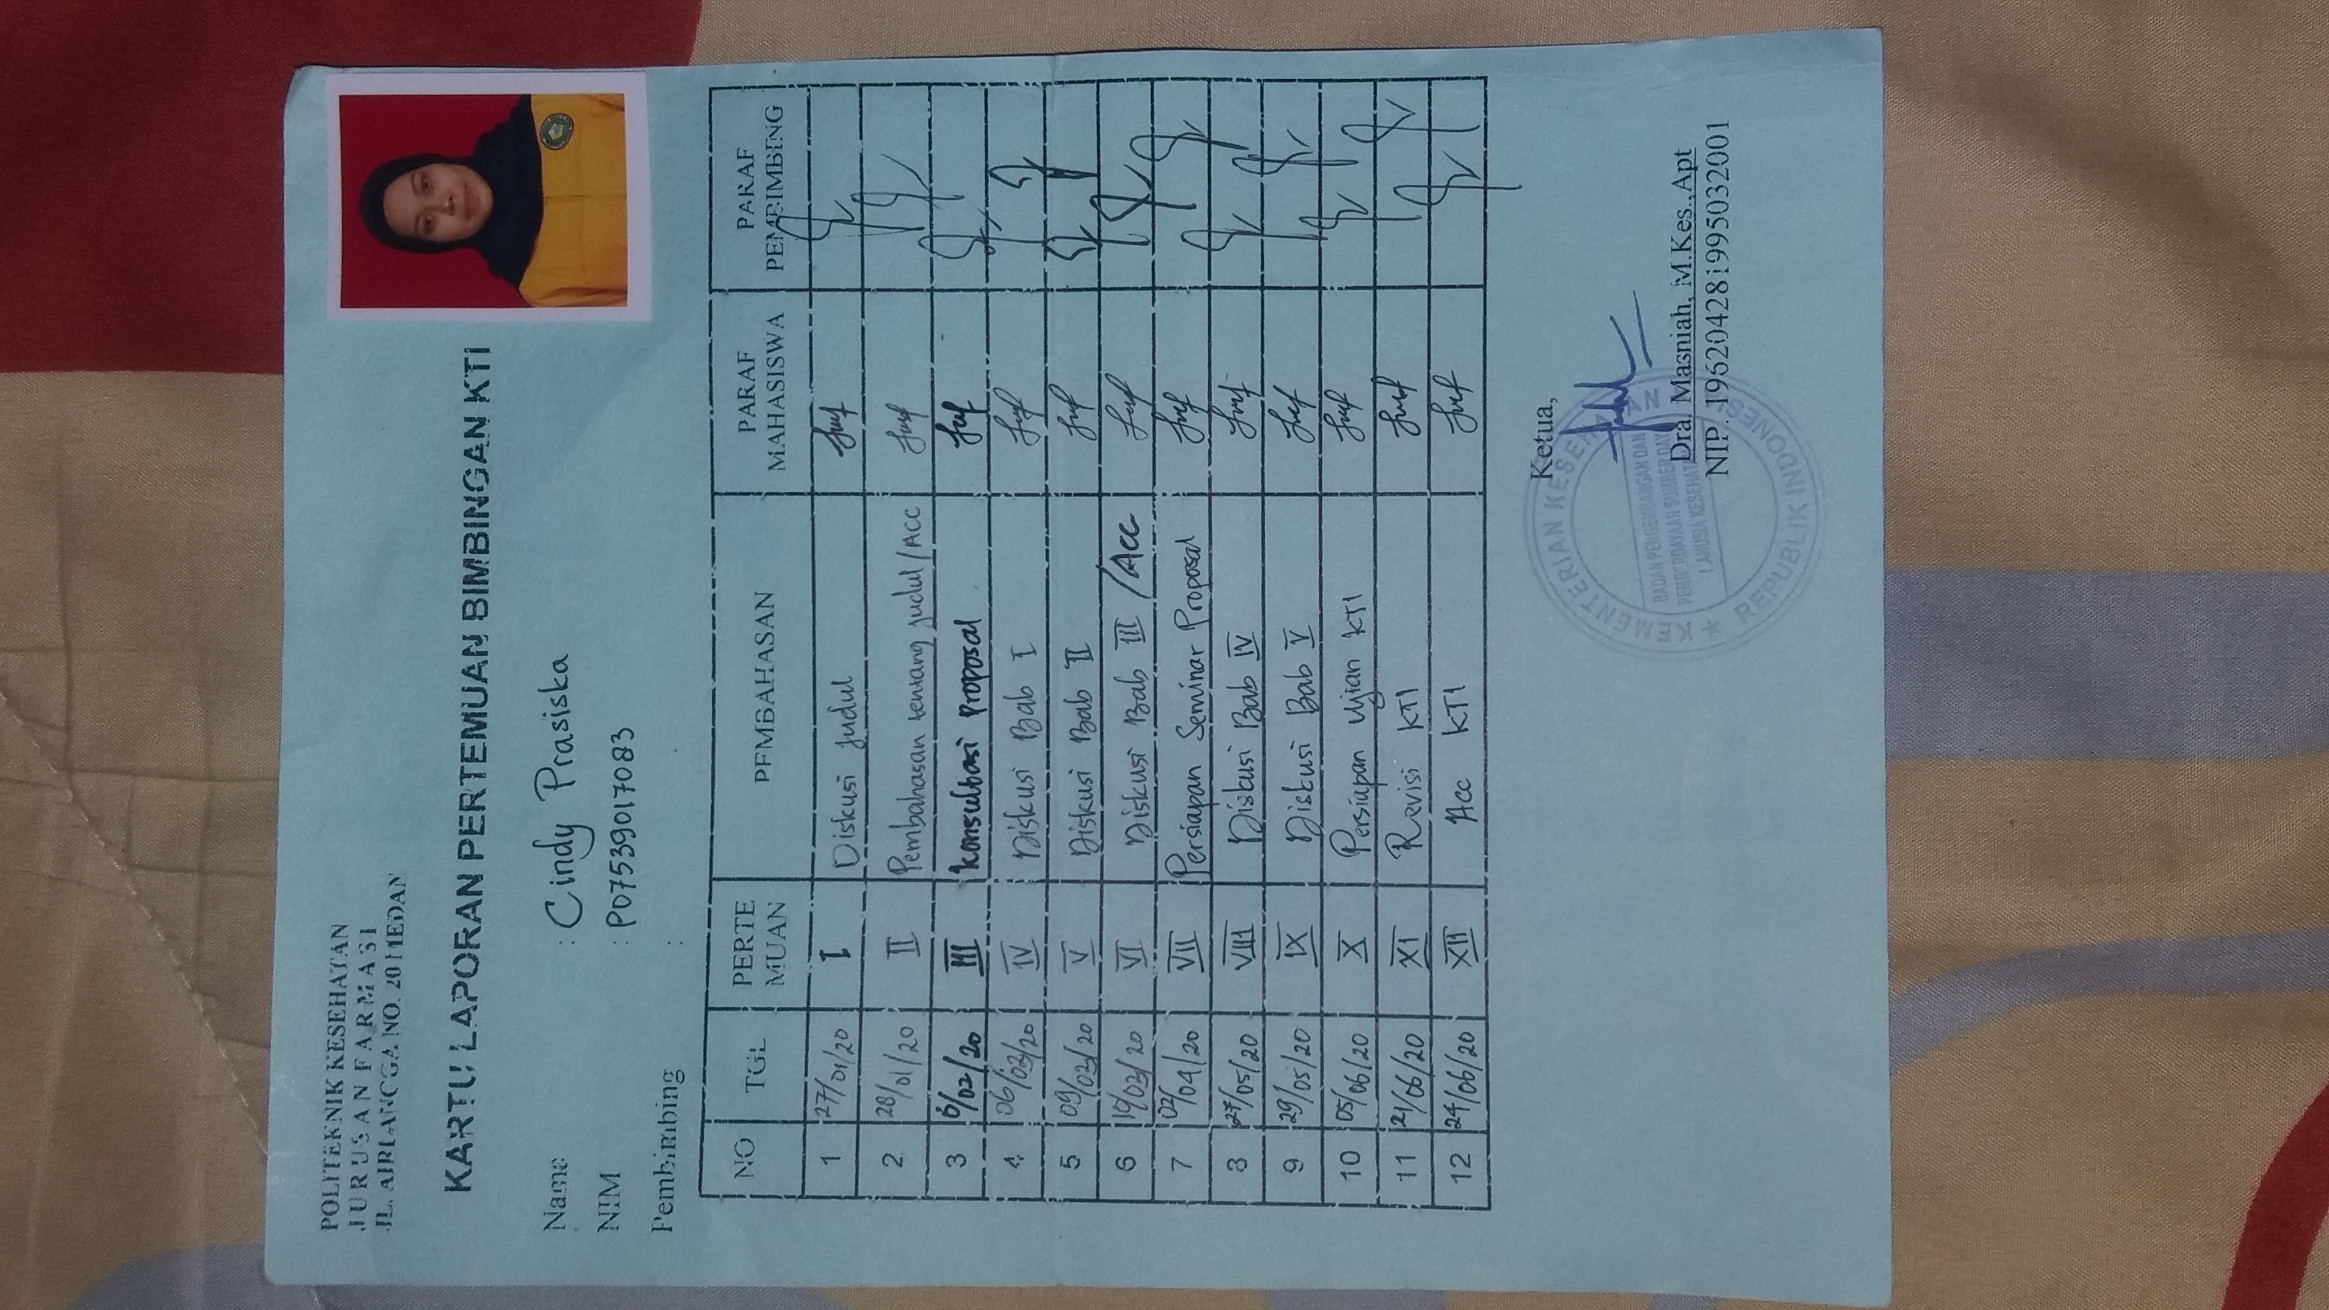 POLITEKNIK KESEHATAN
JURUSAN FARMASI
JL. AIRLANGGA NO. 20 MEDAN
KARTU LAPORAN PERTEMUAN BIMBINGAN KTI
Nama : Cindy Prasiska
NIM : P07539017083
Pembimbing :
NO TGL PERTEMUAN PEMBAHASAN PARAF MAHASISWA PARAF PEMBIMBING
1 27/01/20 I Diskusi Judul
2 28/01/20 II Pembahasan tentang Judul/ACC
3 6/02/20 III Konsultasi Proposal
4 06/03/20 IV Diskusi Bab I
5 09/03/20 V Diskusi Bab II
6 19/03/20 VI Diskusi Bab III /Acc
7 02/04/20 VII Persiapan Seminar Proposal
8 27/05/20 VIII Diskusi Bab IV
9 29/05/20 IX Diskusi Bab V
10 05/06/20 X Persiapan Ujian KTI
11 21/06/20 XI Revisi KTI
12 24/06/20 XII Acc KTI
Ketua,
KEMENTERIAN KESEHATAN
BADAN PENGEMBANGAN DAN
PEMBERDAYAAN SUMBER DAYA
MANUSIA KESEHATAN
REPUBLIK INDONESIA
Dra. Masniah, M.Kes.,Apt
NIP. 196204281995032001